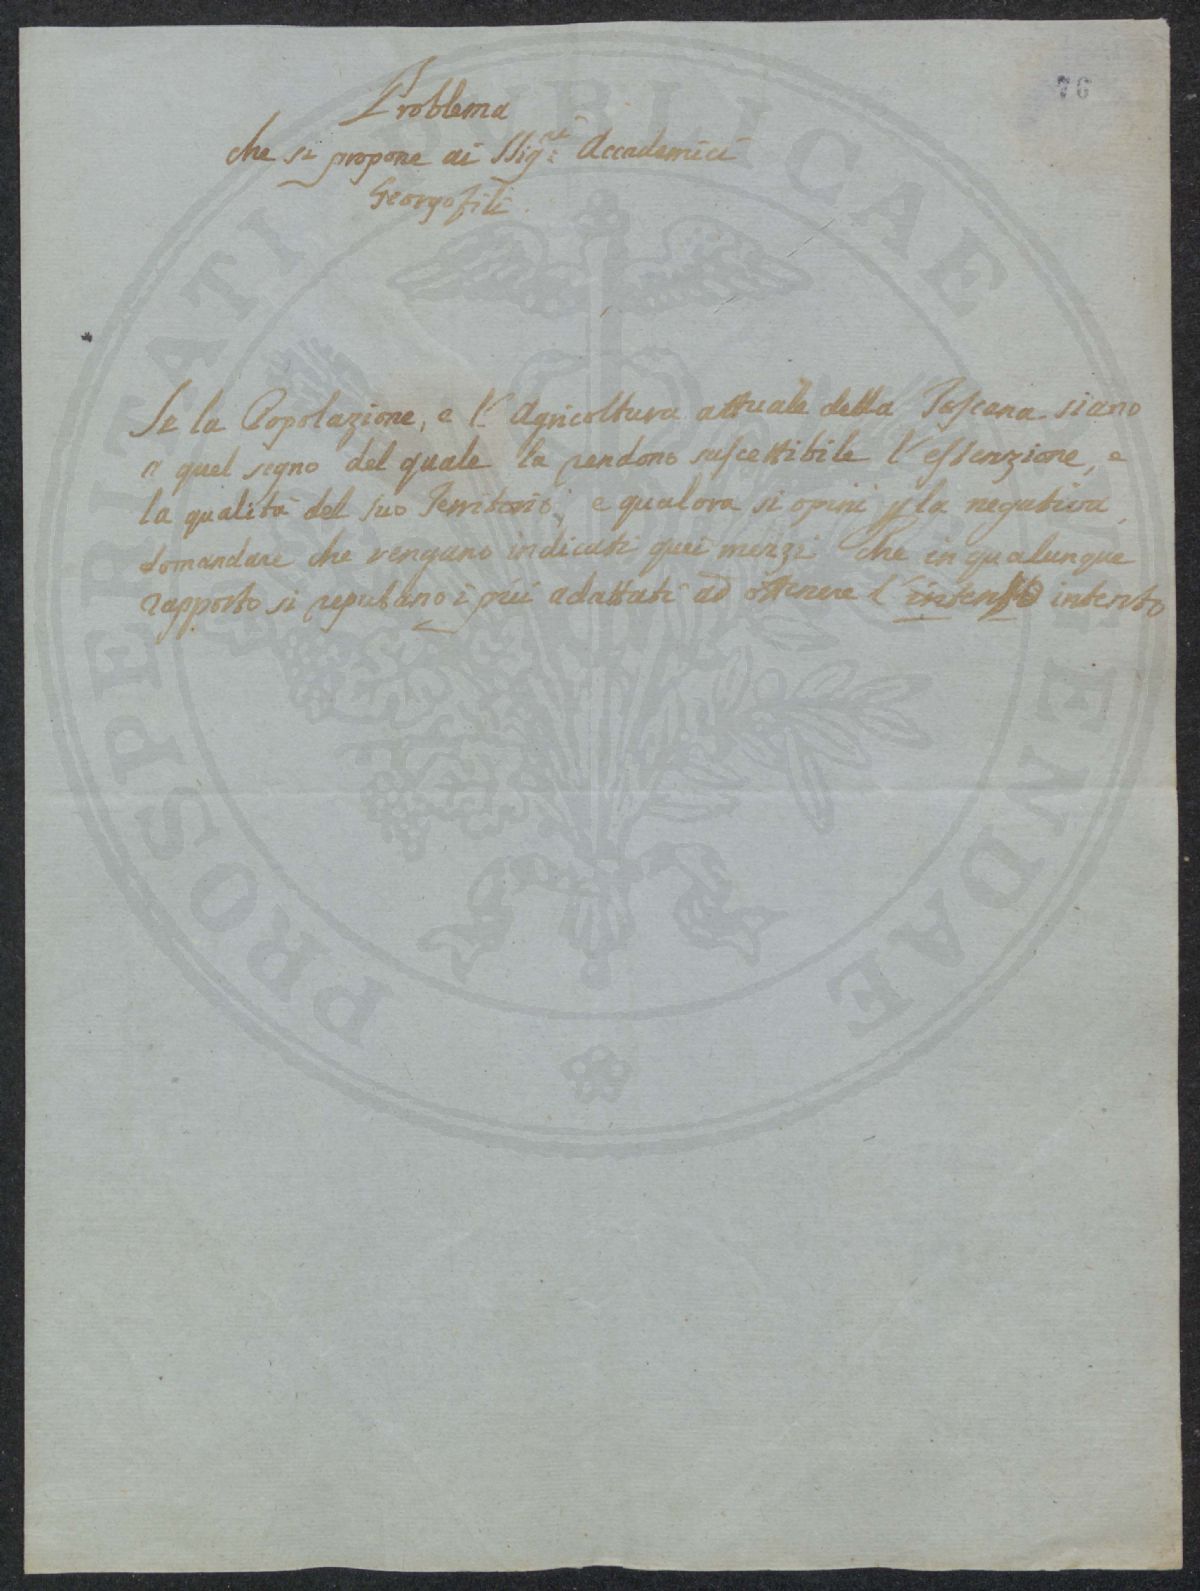 76
Problema
che si propone ai SSig:ri Accademici
Georgofili
Se la Popolazione, e l'Agricoltura attuale della Toscana siano
a quel segno del quale la rendono suscettibile l'estenzione, e
la qualità del suo Territorio; e qualora si opini p la negativa,
domandare che vengano indicati quei mezzi che in qualunque
rapporto si reputano i più adattati ad ottenere l' intento
PROSPERITATI PUBLICAE AUGENDAE